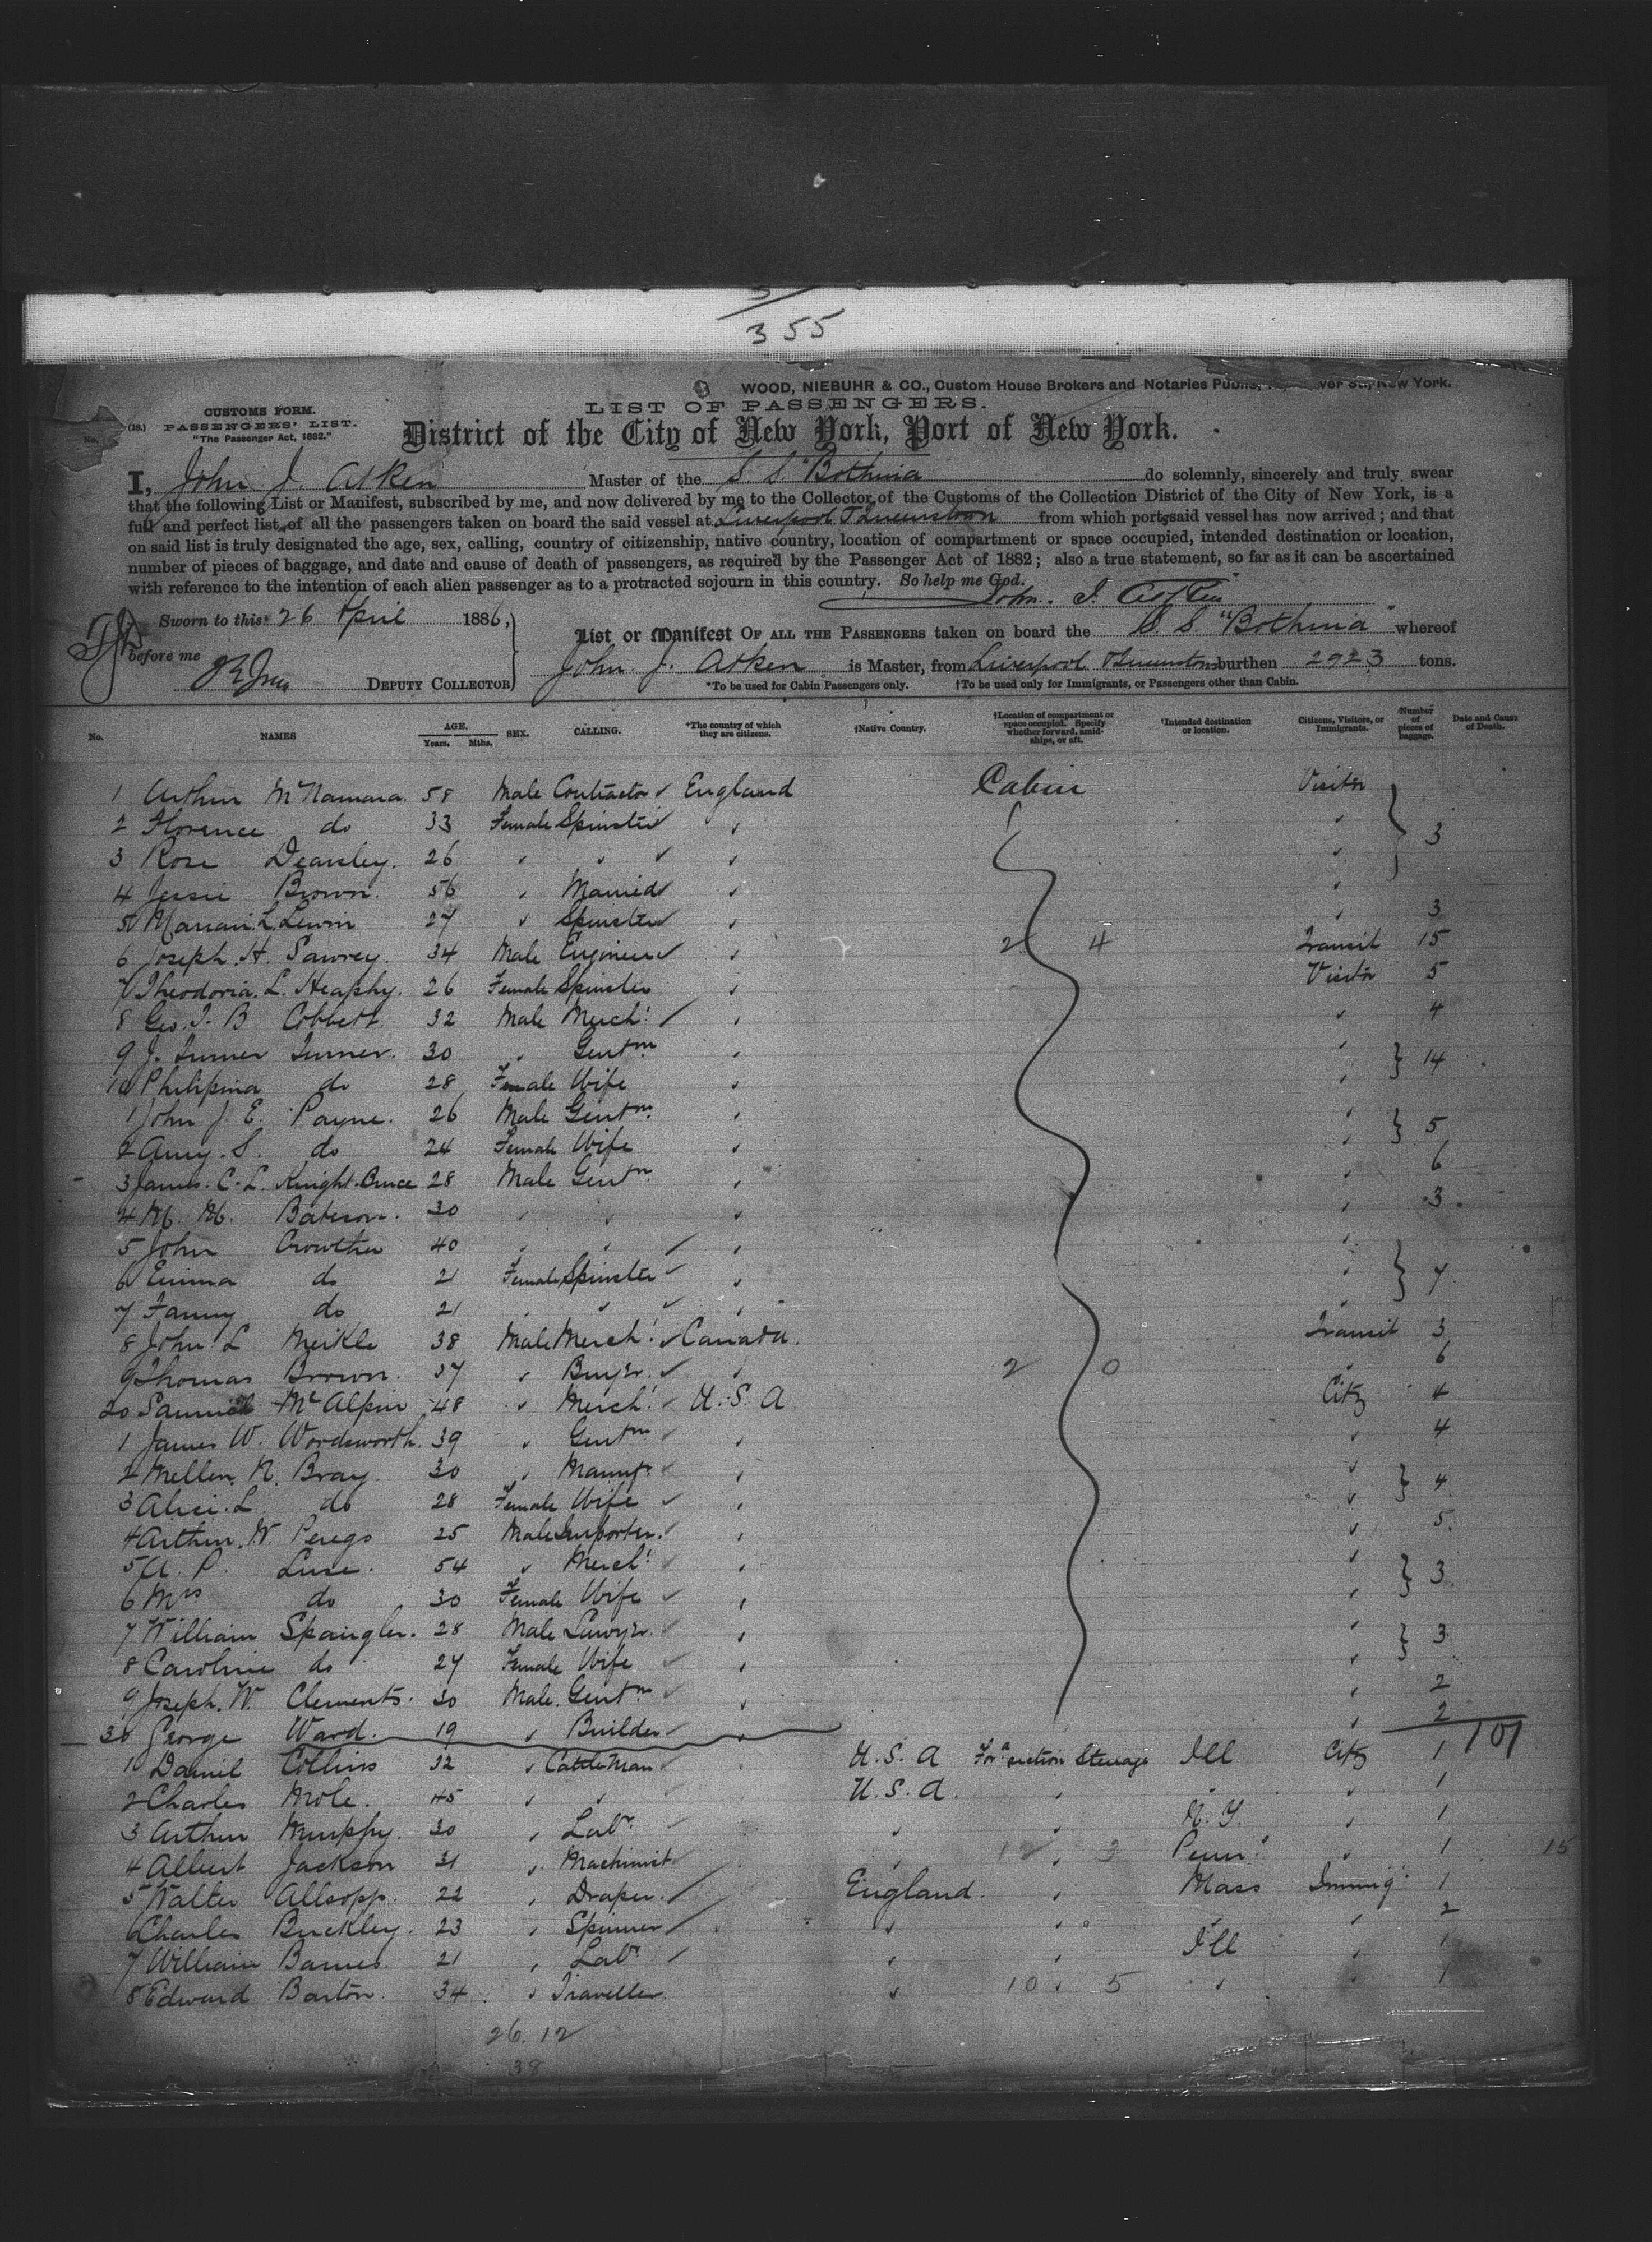 355
WOOD, NIEBUHR & CO., Custom House Brokers and Notaries Public, New York.
LIST OF PASSENGERS.
CUSTOMS FORM.
(18.) PASSENGERS' LIST.
"The Passenger Act, 1882."
District of the City of New York, Port of New York.
I, John J. Atken Master of the S. S. "Bothnia" do solemnly, sincerely and truly swear
that the following List or Manifest, subscribed by me, and now delivered by me to the Collector of the Customs of the Collection District of the City of New York, is a
full and perfect list of all the passengers taken on board the said vessel at Liverpool & Queenstown from which ports said vessel has now arrived; and that
on said list is truly designated the age, sex, calling, country of citizenship, native country, location of compartment or space occupied, intended destination or location,
number of pieces of baggage, and date and cause of death of passengers, as required by the Passenger Act of 1882; also a true statement, so far as it can be ascertained
with reference to the intention of each alien passenger as to a protracted sojourn in this country. So help me God.
Sworn to this 26 April 1886,
before me
DEPUTY COLLECTOR
List or Manifest OF ALL THE PASSENGERS taken on board the S. S. "Bothnia" whereof
John J. Atken is Master, from Liverpool & Queenstown burthen 2923 tons.
*To be used for Cabin Passengers only. †To be used only for Immigrants, or Passengers other than Cabin.
No. NAMES AGE. Years. Mths. SEX. CALLING. *The country of which they are citizens. †Native Country. †Location of compartment or space occupied. Specify whether forward, amidships, or aft. †Intended destination or location. Citizens, Visitors, or Immigrants. Number of pieces of baggage. Date and Cause of Death.
1 Arthur McNamara. 58 Male Contractor England Cabin Visitor
2 Florence do 33 Female Spinster 3
3 Rose Dearsley. 26
4 Jessie Brown. 56 Married
5 Marian L. Lewin 27 Spinster 3
6 Joseph. H. Sawrey. 34 Male Engineer 2 4 Transit 15
7 Theodoria. L. Heaphy. 26 Female Spinster Visitor 5
8 Geo. J. B Cobbett 32 Male Mercht 4
9 J. Turner Turner. 30 Gentm 14
10 Philipina do 28 Female Wife
1 John J. E. Payne. 26 Male Gentm. 5
2 Amy. S. do 24 Female Wife
3 James. C. L. Knight-Bruce 28 Male Gentm 6
4 M. M. Bateson. 30 3
5 John Crowther 40
6 Emma do 21 Female Spinster 7
7 Fanny do 21
8 John L Meikle 38 Male Mercht Canada. Transit 3
9 Thomas Brown. 37 Buyer. 2 0 6
20 Samuel McAlpin 48 Mercht U. S. A Citz 4
1 James W. Wordsworth. 39 Gentm 4
2 Mellen. N. Bray. 30 4
3 Alice. L do 28 Female Wife
4 Arthur. W. 25 Male Importer. 5.
5 A. P. 54 Mercht
6 Mrs do 30 Female Wife 3.
7 William Spangler. 28 Male Lawyer. 3
8 Caroline do 27 Female Wife
9 Joseph. W. Clements. 30 Male. Gentm 2
30 George Ward. 19 Builder 2
101
1 Daniel Collins 32 Cattle Man U. S. A Ford section Steerage Ill Citz 1
2 Charles Mole. 45 U. S. A. 1
3 Arthur Murphy. 30 Labr. N. Y. 1
4 Albert Jackson 31 Machinist Penn. 1 15
5 Walter Allsopp. 22 Draper. England. Mass Immig. 1
6 Charles Buckley. 23 Spinner 2
7 William Barnes. 21 Labr Ill 1
8 Edward Barton. 34 Traveller 10 5 1
26. 12
38